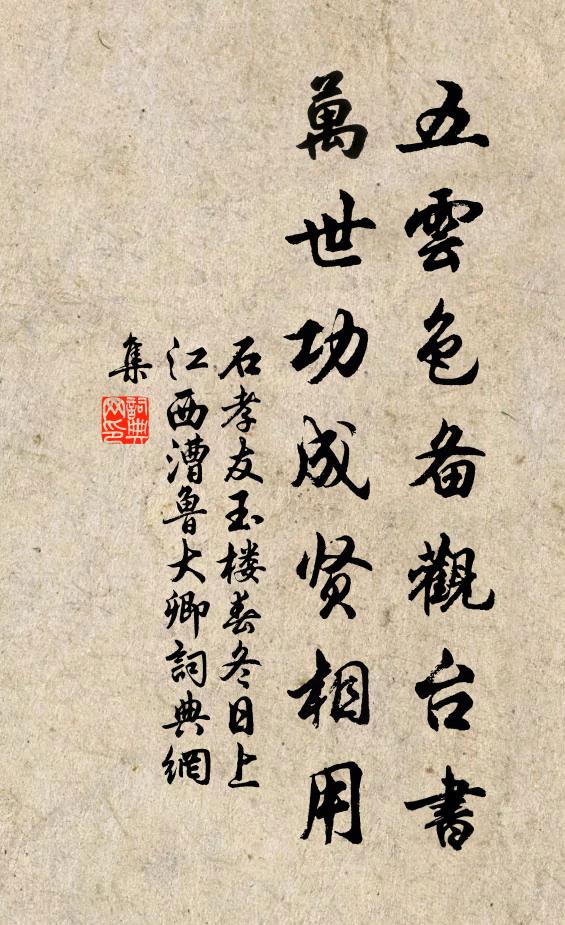 五雲色备觀台書
萬世功成贤相用
石孝友玉楼春冬日上
江西漕魯大卿詞典網
集
詞典網印